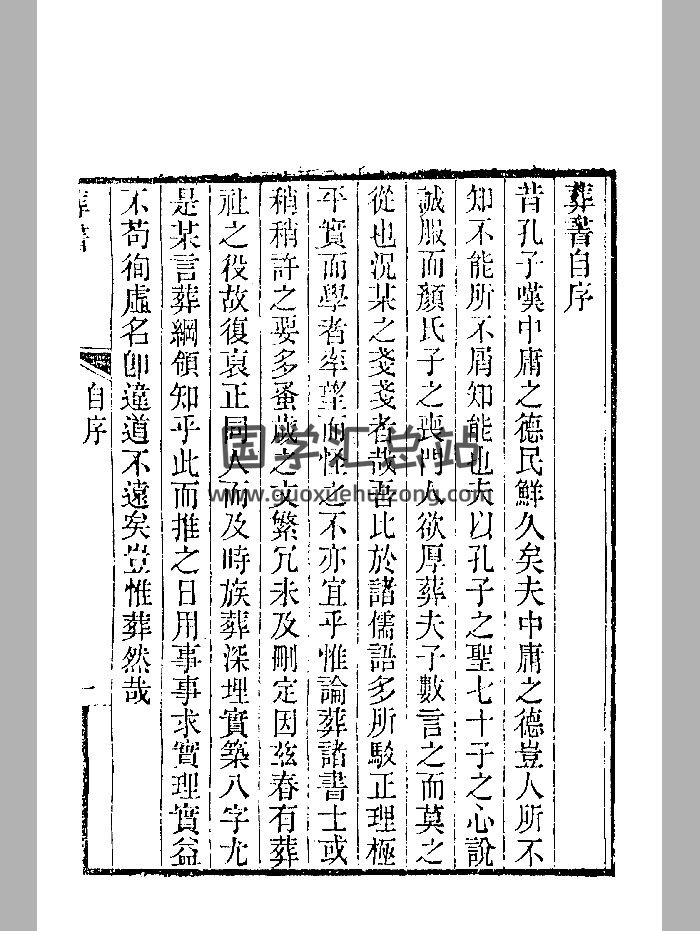 葬書自序
昔孔子嘆中庸之德民鮮久矣夫中庸之德豈人所不
知不能所不屑知能也夫以孔子之聖七十子之心說
誠服而顏氏子之喪門人欲厚葬夫子數言之而莫之
從也況某之戔戔者哉吾比於諸儒語多所駁正理極
平實而學者率望而怪之不亦宜乎惟論葬諸書士或
稍稍許之要多蚤歲之文繁冗未及刪定因茲春有葬
社之役故復裒正同人而及時族葬深埋實築八字尤
是某言葬綱領知乎此而推之日用事事求實理實益
不苟徇虛名卽違道不遠矣豈惟葬然哉
葬書
自序
一
国学汇总站
www.guoxuehuizong.com